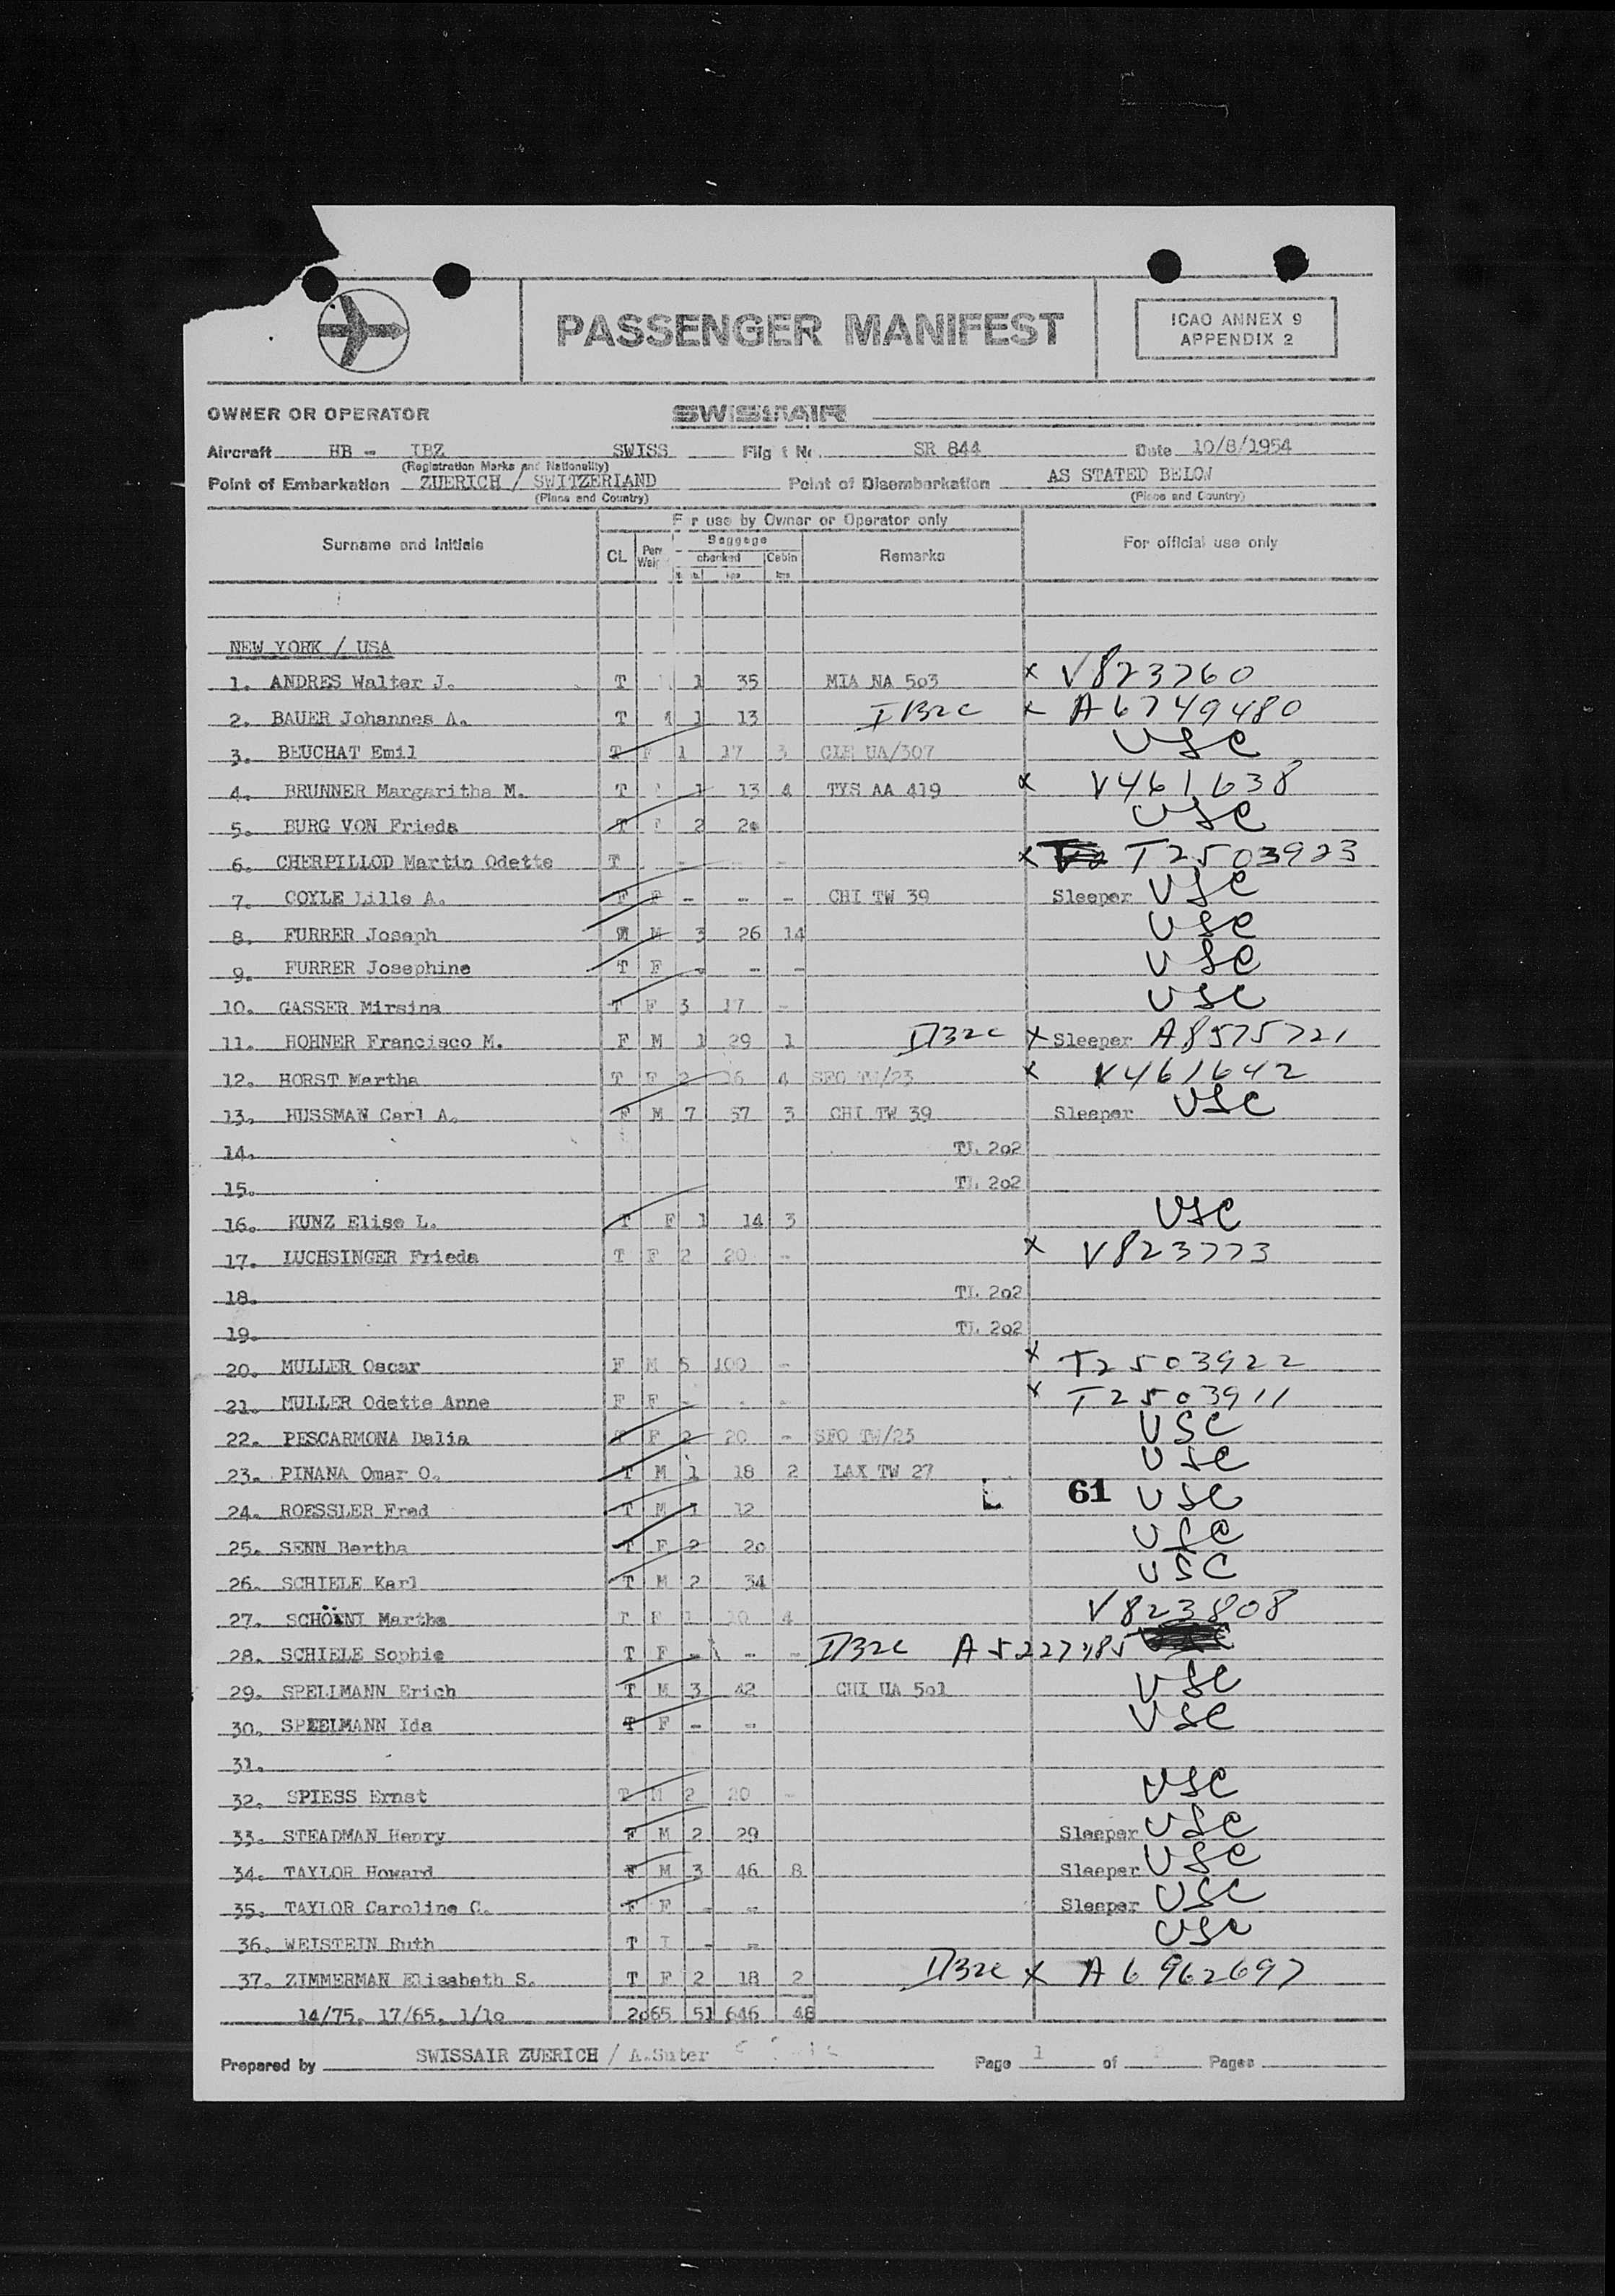 PASSENGER MANIFEST
ICAO ANNEX 9
APPENDIX 2
OWNER OR OPERATOR SWISSAIR
Aircraft HB - IBZ SWISS Flight No. SR 844 Date 10/8/1954
(Registration Marks and Nationality)
Point of Embarkation ZUERICH / SWITZERLAND Point of Disembarkation AS STATED BELOW
(Place and Country) (Place and Country)
For use by Owner or Operator only
Surname and Initials CL Baggage Remarks For official use only
checked Cabin
NEW YORK / USA
1. ANDRES Walter J. T 1 35 MIA NA 503 x V823260
2. BAUER Johannes A. T 1 13 x A6749480
3. BEUCHAT Emil T F 1 17 3 CLE UA/307 USC
4. BRUNNER Margaritha M. T 1 13 4 TYS AA 419 x V461638
5. BURG VON Frieda T F 2 20 USC
6. CHERPILLOD Martin Odette T - - x T2503923
7. COYLE Lille A. F F - - - CHI TW 39 Sleeper USC
8. FURRER Joseph M 3 26 14 USC
9. FURRER Josephine T F - - - USC
10. GASSER Mirsina T F 3 17 - USC
11. HOHNER Francisco M. F M 1 29 1 II32c x Sleeper A8575721
12. HORST Martha T F 2 16 4 SFO TW/23 x V461642
13. HUSSMAN Carl A. F M 7 57 3 CHI TW 39 Sleeper USC
14. TL 202
15. TL 202
16. KUNZ Elise L. T F 1 14 3 USC
17. LUCHSINGER Frieda T F 2 20 - x V823773
18. TL 202
19. TL 202
20. MULLER Oscar F M 5 100 - x T2503922
21. MULLER Odette Anne F F - - - x T2503911
22. PESCARMONA Dalia T F 2 20 - SFO TW/23 USC
23. PINANA Omar O. T M 1 18 2 LAX TW 27 USC
24. ROESSLER Fred T M 1 12 61 USC
25. SENN Bertha T F 2 20 USC
26. SCHIELE Karl T M 2 34 USC
27. SCHÖNNI Martha T F 1 10 4 V823808
28. SCHIELE Sophie T F - - - II32c A5227485
29. SPELLMANN Erich T M 3 42 CHI UA 501 USC
30. SPEELMANN Ida T F - - USC
31.
32. SPIESS Ernst T M 2 20 - USC
33. STEADMAN Henry F M 2 29 Sleeper USC
34. TAYLOR Howard F M 3 46 8 Sleeper USC
35. TAYLOR Caroline C. F F - - Sleeper USC
36. WEISTEIN Ruth T I - - USC
37. ZIMMERMAN Elisabeth S. T F 2 18 2 II32c x A6962697
14/75, 17/65, 1/10 2065 51 646 48
Prepared by SWISSAIR ZUERICH / A.Suter Page 1 of 2 Pages